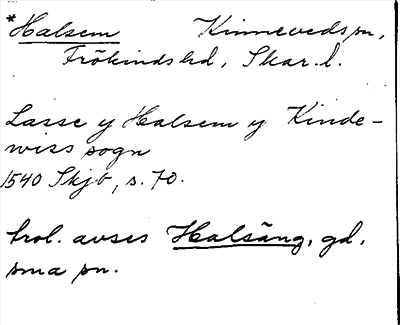 *Halsem Kinnevedsn,
Frökinds hd, Skar. l.
Lasse y Halsem y Kinde-
wiss sogn
1540 Skjb, s. 70.
trol. avses Halsäng, gd,
sma sn.